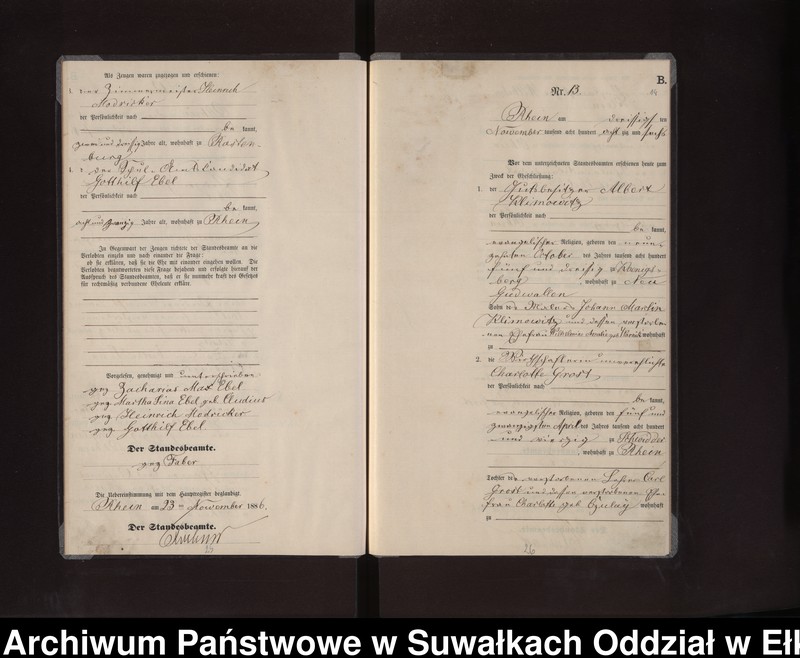 Als Zeugen waren zugezogen und erschienen:
1. der Zimmermeister Heinrich
Modricker
der Persönlichkeit nach
be kannt,
Jahre alt, wohnhaft zu Rasten-
burg
2. der Schul-Amts Candidat
Gotthilf Ebel
der Persönlichkeit nach
be kannt,
acht und zwanzig Jahre alt, wohnhaft zu Rhein
In Gegenwart der Zeugen richtete der Standesbeamte an die
Verlobten einzeln und nach einander die Frage:
ob sie erklären, daß sie die Ehe mit einander eingehen wollen. Die
Verlobten beantworteten diese Frage bejahend und erfolgte hierauf der
Ausspruch des Standesbeamten, daß er sie nunmehr kraft des Gesetzes
für rechtmäßig verbundene Eheleute erkläre.
Vorgelesen, genehmigt und unterschrieben
gez. Zacharias Max Ebel
gez. Martha Lina Ebel geb.
gez. Heinrich Modricker
gez. Gotthilf Ebel
Der Standesbeamte.
gez. Faber
Die Uebereinstimmung mit dem Hauptregister beglaubigt.
Rhein am 23ten November 1886.
Der Standesbeamte.
B.
Nr. 13.
Rhein am dreissigsten
November tausend acht hundert acht zig und sechs
Vor dem unterzeichneten Standesbeamten erschienen heute zum
Zweck der Eheschließung:
1. der Gutsbesitzer Albert
Klimowitz
der Persönlichkeit nach
be kannt,
evangelischer Religion, geboren den neun-
zehnten October des Jahres tausend acht hundert
fünf und dreissig zu Koenigs-
berg, wohnhaft zu Neu
Gudwallen
Sohn des Malers Johann Martin
Klimowitz und dessen verstorbe-
nen Ehefrau wohnhaft
zu
2. die Wirthschafterin unverehelichte
Charlotte Grost
der Persönlichkeit nach
be kannt,
evangelischer Religion, geboren den fünf und
zwanzigsten April des Jahres tausend acht hundert
und vierzig zu Schwidder
, wohnhaft zu Rhein
Tochter des verstorbenen Lehrer Carl
Grost und dessen verstorbenen Ehe-
frau Charlotte geb. Czulay wohnhaft
zu
26
Archiwum Państwowe w Suwałkach Oddział w Ełk